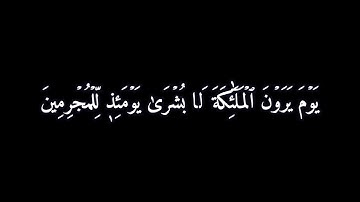 يَوْمَ يَرَوْنَ ٱلْمَلَٰٓئِكَةَ لَا بُشْرَىٰ يَوْمَئِذٍ لِّلْمُجْرِمِينَ